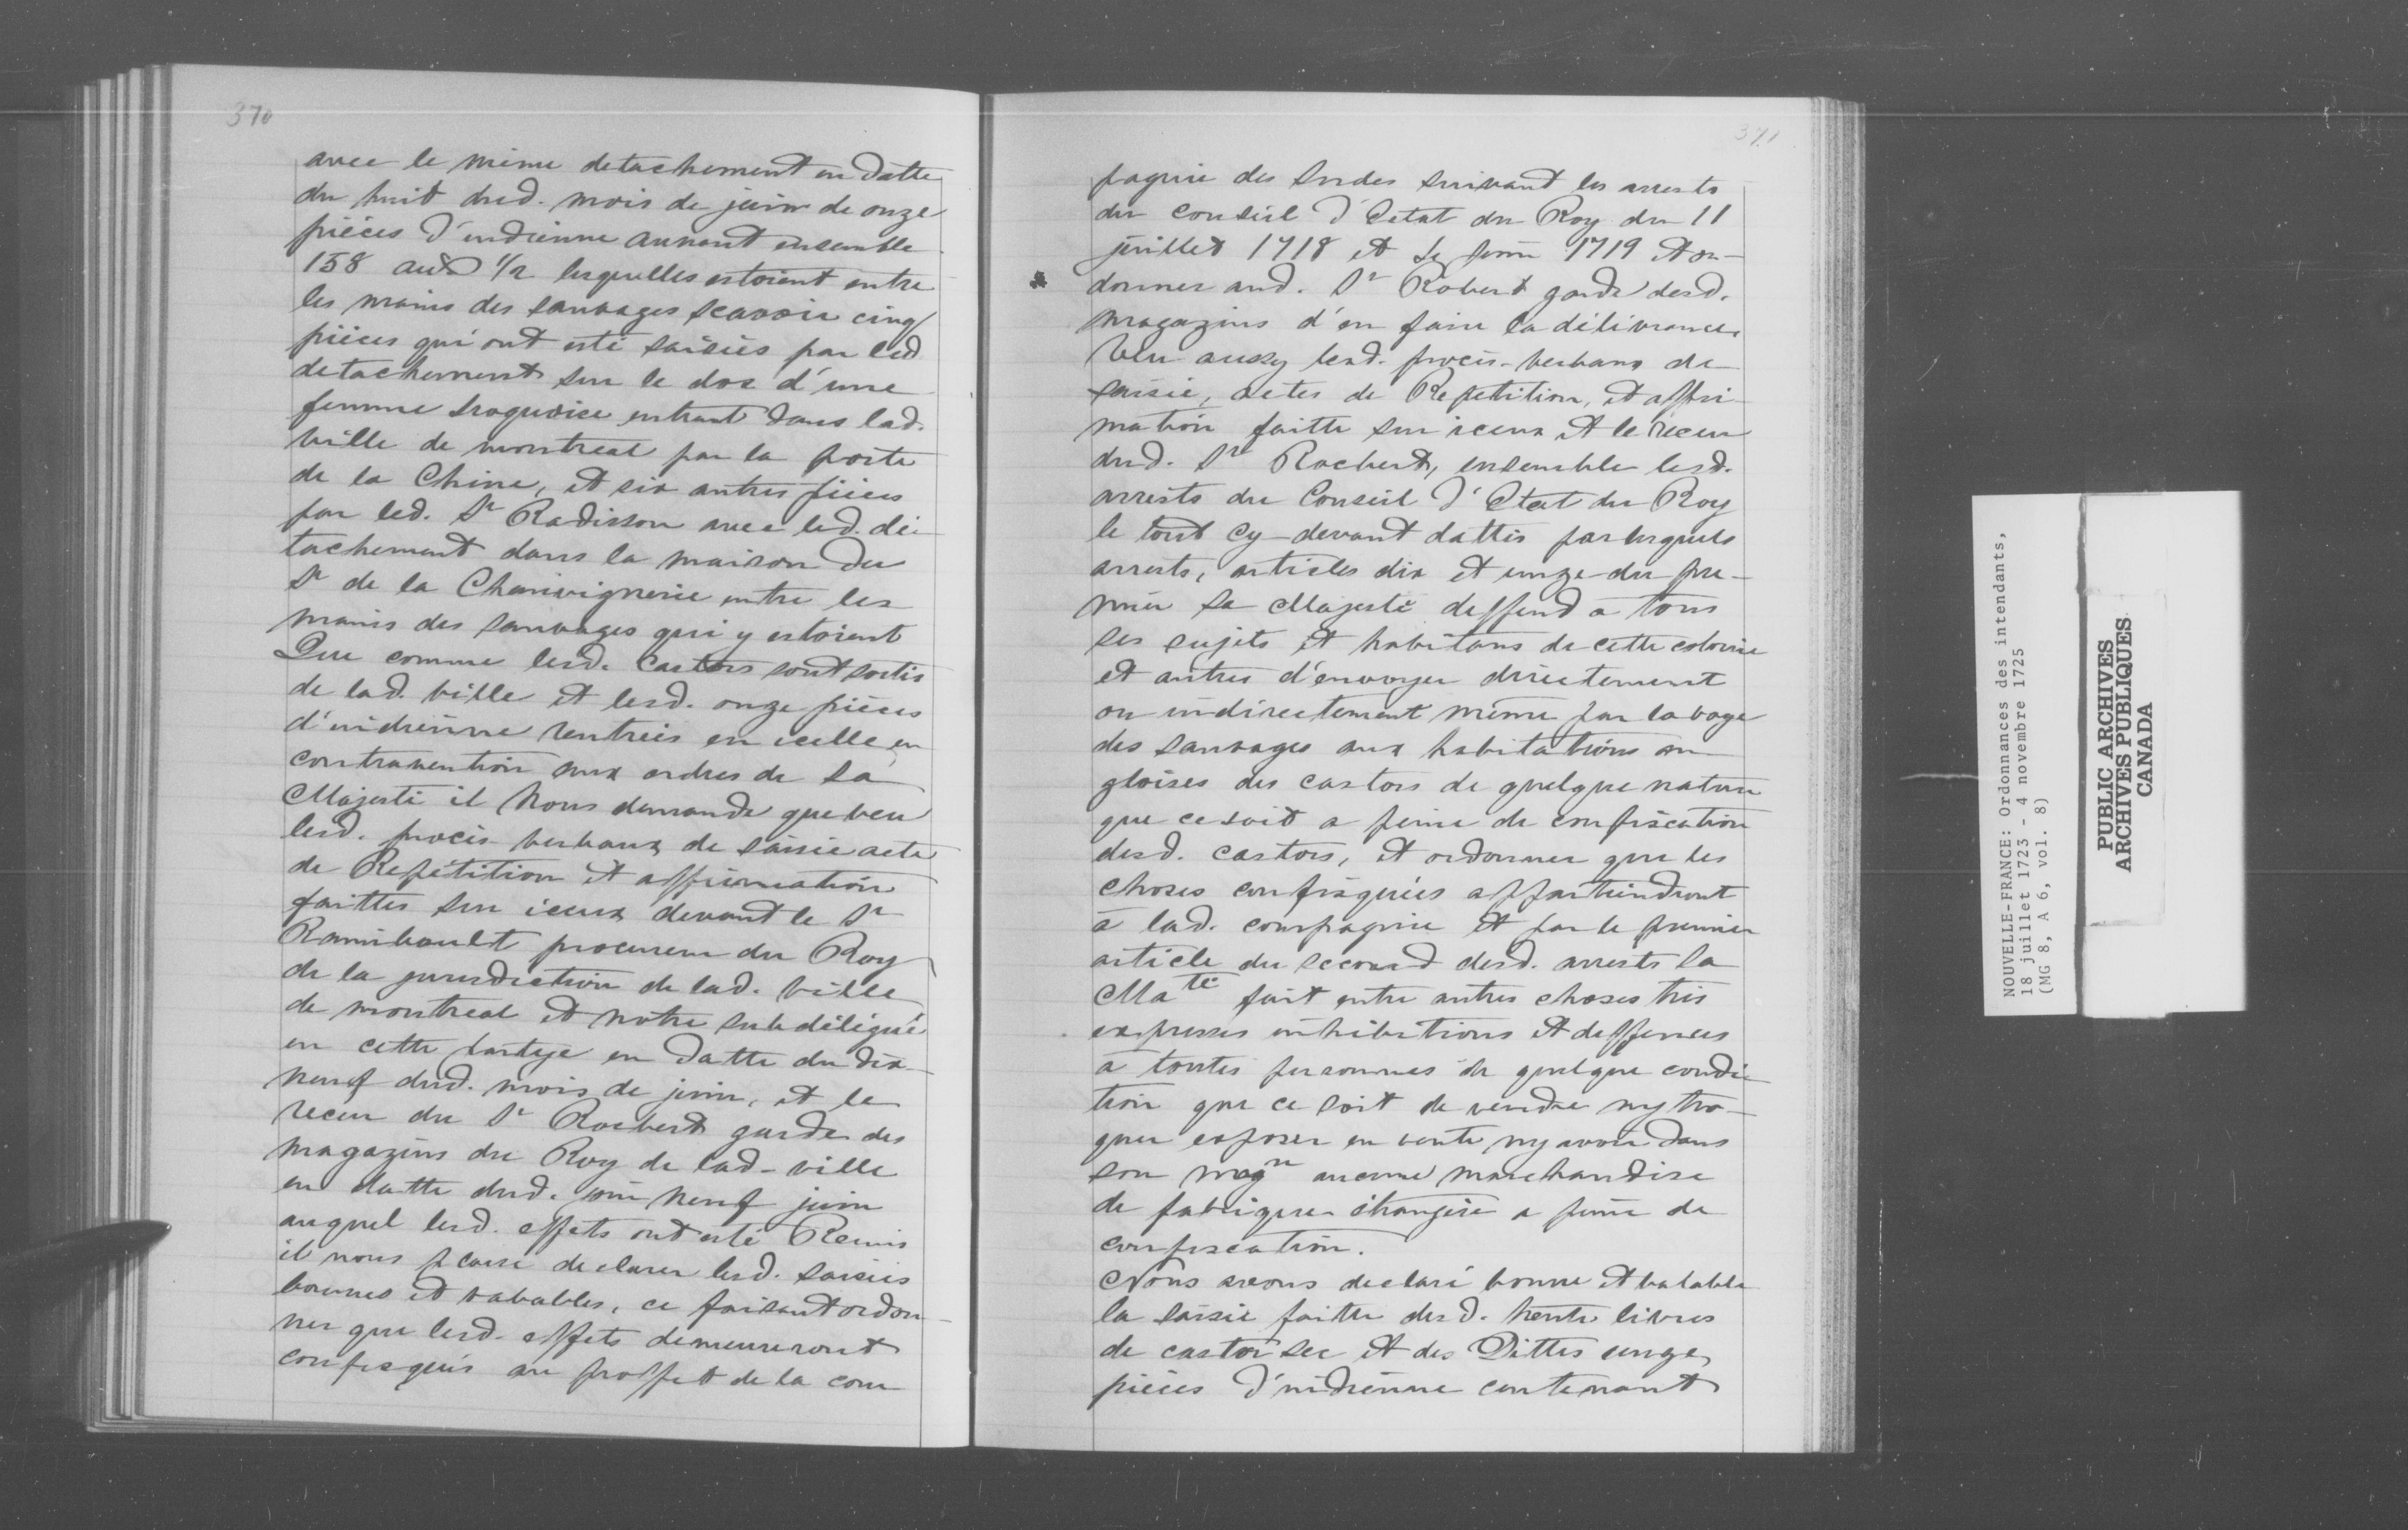 370
avec le même detachement en datte
du huit dud. mois de juin de onze
pièces d'indienne aunant ensemble
158 aud 1/2 lesquelles estoient entre
les mains des sauvages scavoir cinq
pièces qui ont esté saisies par led
detachement sur le dos d'une
femme Iroquoise entrant dans lad.
ville de montreal par la porte
de la Chine, et six autres pièces
par led. Sr Radisson avec led. dé-
tachement dans la maison du
Sr de la Chauvignerie entre les
mains des sauvages qui y estoient
Que comme lesd. Castors sont sortis
de lad. ville et lesd. onze pièces
d'indienne rentrées en icelle en
contravention aux ordres de Sa
Majesté il Nous demande que veu
lesd. procès verbaux de saisie acte
de Repétition et affirmation
faittes sur iceux devant le Sr
Raimbault procureur du Roy
de la jurisdiction de lad. ville
de montreal et notre subdélégué
en cette partye en datte du dix
neuf dud. mois de juin, et le
receu du Sr Rocbert garde des
magazins du Roy de lad-ville
en datte dud. jour neuf juin
auquel lesd. effets ont esté Remis
il nous plaise declarer lesd. saisies
bonnes et valables, ce faisant ordon-
ner que lesd. effets demeureront
confisqués au proffet de la com
371
pagnie des Indes suivant les arrests
du conseil d'Estat du Roy du 11
juillet 1718 et juin 1719 et or-
donner aud. Sr Robert garde desd.
magazins d'en faire la délivrance.
Veu aussy lesd. procès-verbaux de
saisie, actes de Repetition, et affir-
mation faitte sur iceux et le receu
dud. Sr Rocbert, ensemble lesd.
arrests du Conseil d'Etat du Roy
le tout cy-devant dattés par lesquels
arrests, articles dix et unze du pre-
mier Sa Majesté deffend à tous
ses sujets et habitans de cette colonie
et autres d'envoyer directement
ou indirectement même par la voye
des sauvages aux habitations an
gloises des castors de quelque nature
que ce soit a peine de confiscation
desd. castors, et ordonner que les
choses confisquées appartiendront
à lad. compagnie et par le premier
article du second desd. arrests Sa
Maté fait entre autres choses très
expresses inhibitions et deffences
à toutes personnes de quelque condi-
tion que ce soit de vendre ny tro-
quer exposer en vente ny avoir dans
son magn aucune marchandise
de fabrique étrangère a peine de
confiscation.
Nous avons declaré bonne et valable
la saisie faitte desd. trente livres
de castor sec et des Dittes unze
pièces d'indienne contenant
NOUVELLE-FRANCE: Ordonnances des intendants,
18 juillet 1723 - 4 novembre 1725
(MG 8, A 6, vol. 8)
PUBLIC ARCHIVES
ARCHIVES PUBLIQUES
CANADA